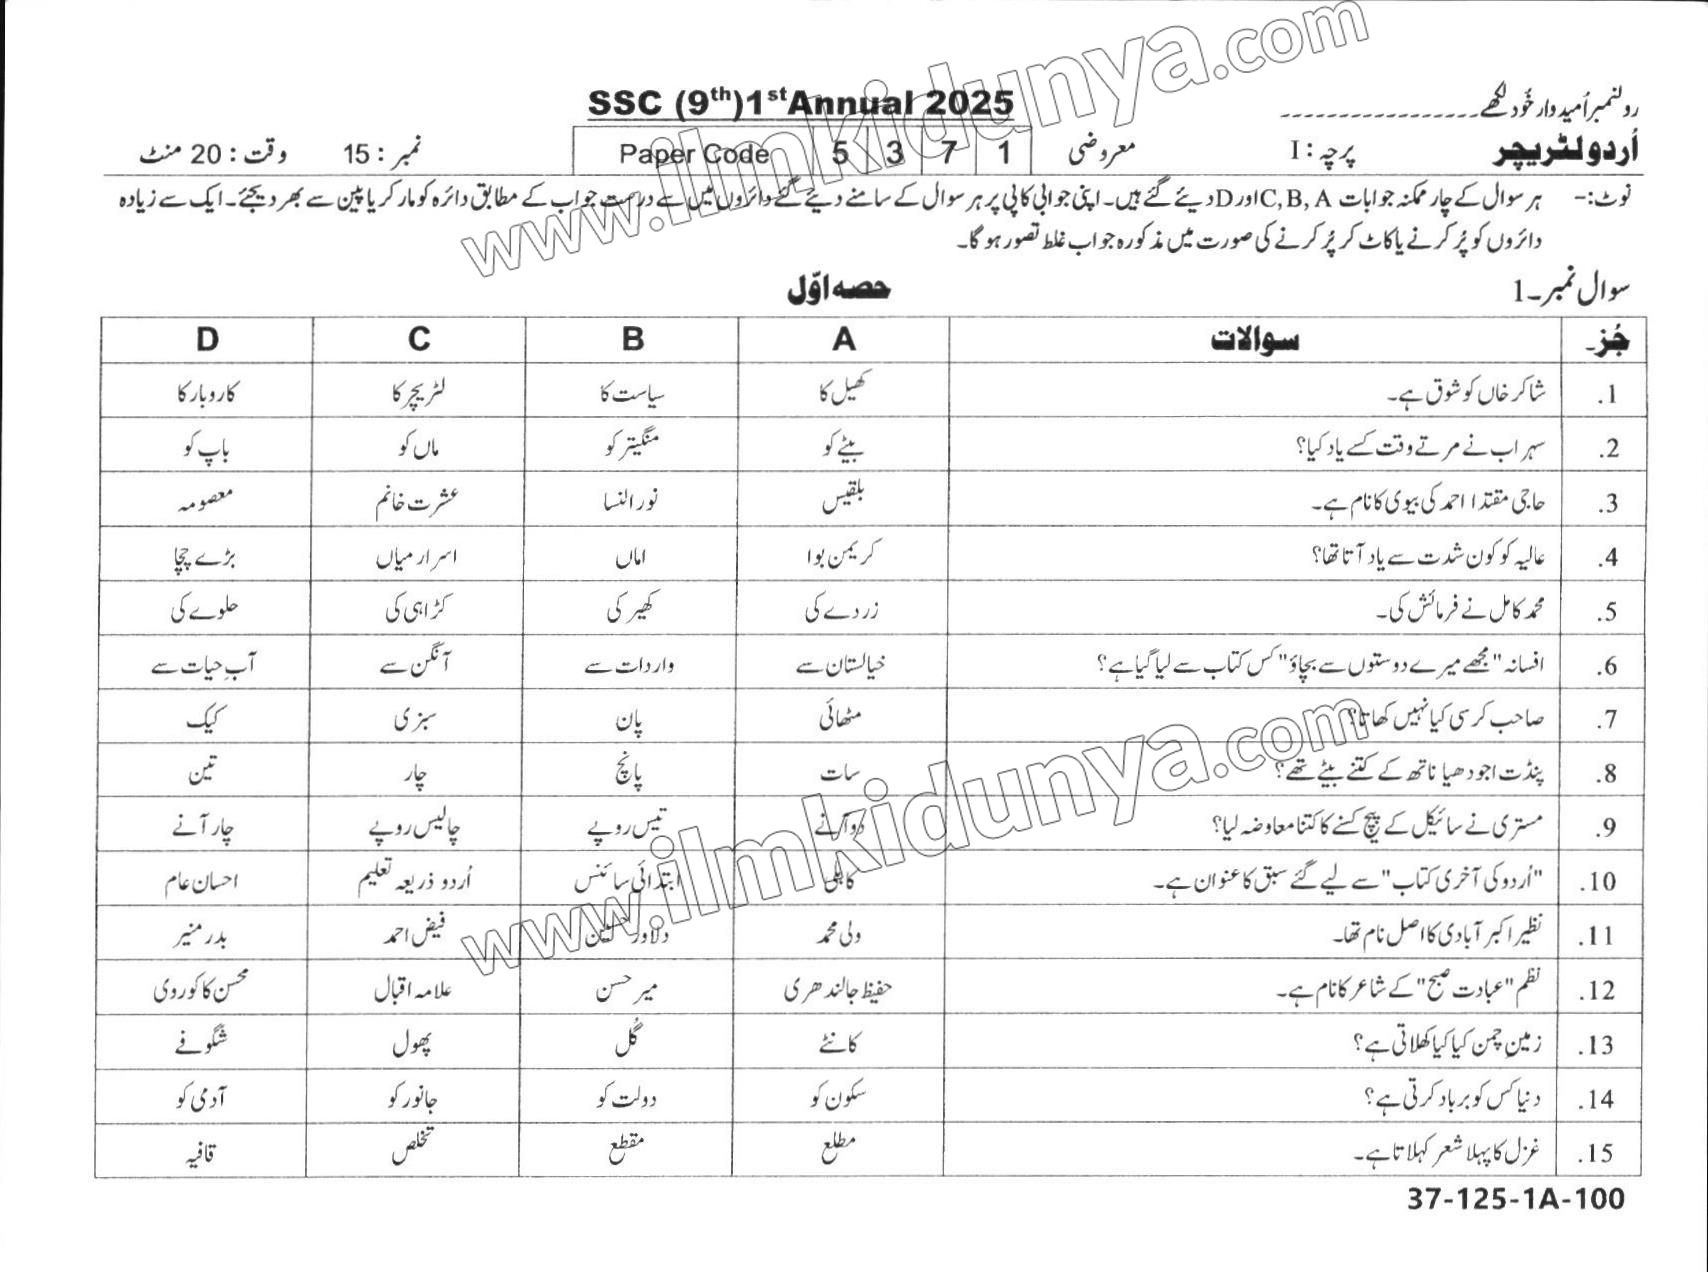 SSC (9th) 1st Annual 2025
رولنمبر اُمیدوار خُود لکھے ------------------
اُردو لٹریچر پرچہ : I معروضی Paper Code 5 3 7 1 نمبر : 15 وقت : 20 منٹ
نوٹ:- ہر سوال کے چار ممکنہ جوابات C, B, A اور D دیئے گئے ہیں۔ اپنی جوابی کاپی پر ہر سوال کے سامنے دیئے گئے دائروں میں سے درست جواب کے مطابق دائرہ کو مارکر یا پین سے بھر دیجئے۔ ایک سے زیادہ
دائروں کو پُر کرنے یا کاٹ کر پُر کرنے کی صورت میں مذکورہ جواب غلط تصور ہو گا۔
سوال نمبر۔1 حصہ اوّل
جُز۔ سوالات A B C D
1. شاکر خاں کو شوق ہے۔ کھیل کا سیاست کا لٹریچر کا کاروبار کا
2. سہراب نے مرتے وقت کسے یاد کیا؟ بیٹے کو منگیتر کو ماں کو باپ کو
3. حاجی مقتدا احمد کی بیوی کا نام ہے۔ بلقیس نور النسا عشرت خانم معصومہ
4. عالیہ کو کون شدت سے یاد آتا تھا؟ کریمن بوا اماں اسرار میاں بڑے چچا
5. محمد کامل نے فرمائش کی۔ زردے کی کھیر کی کڑاہی کی حلوے کی
6. افسانہ "مجھے میرے دوستوں سے بچاؤ" کس کتاب سے لیا گیا ہے؟ خیالستان سے واردات سے آنگن سے آبِ حیات سے
7. صاحب کرسی کیا نہیں کھاتا؟ مٹھائی پان سبزی کیک
8. پنڈت اجودھیا ناتھ کے کتنے بیٹے تھے؟ سات پانچ چار تین
9. مستری نے سائیکل کے پیچ کسنے کا کتنا معاوضہ لیا؟ دو آنے تیس روپے چالیس روپے چار آنے
10. "اُردو کی آخری کتاب" سے لیے گئے سبق کا عنوان ہے۔ کاہلی ابتدائی سائنس اُردو ذریعہ تعلیم احسان عام
11. نظیر اکبر آبادی کا اصل نام تھا۔ ولی محمد دلاور حسین فیض احمد بدر منیر
12. نظم "عبادت صبح" کے شاعر کا نام ہے۔ حفیظ جالندھری میر حسن علامہ اقبال محسن کاکوروی
13. زمینِ چمن کیا کیا کھلاتی ہے؟ کانٹے گُل پھول شگوفے
14. دنیا کس کو برباد کرتی ہے؟ سکون کو دولت کو جانور کو آدمی کو
15. غزل کا پہلا شعر کہلاتا ہے۔ مطلع مقطع تخلص قافیہ
37-125-1A-100
www.ilmkidunya.com
www.ilmkidunya.com